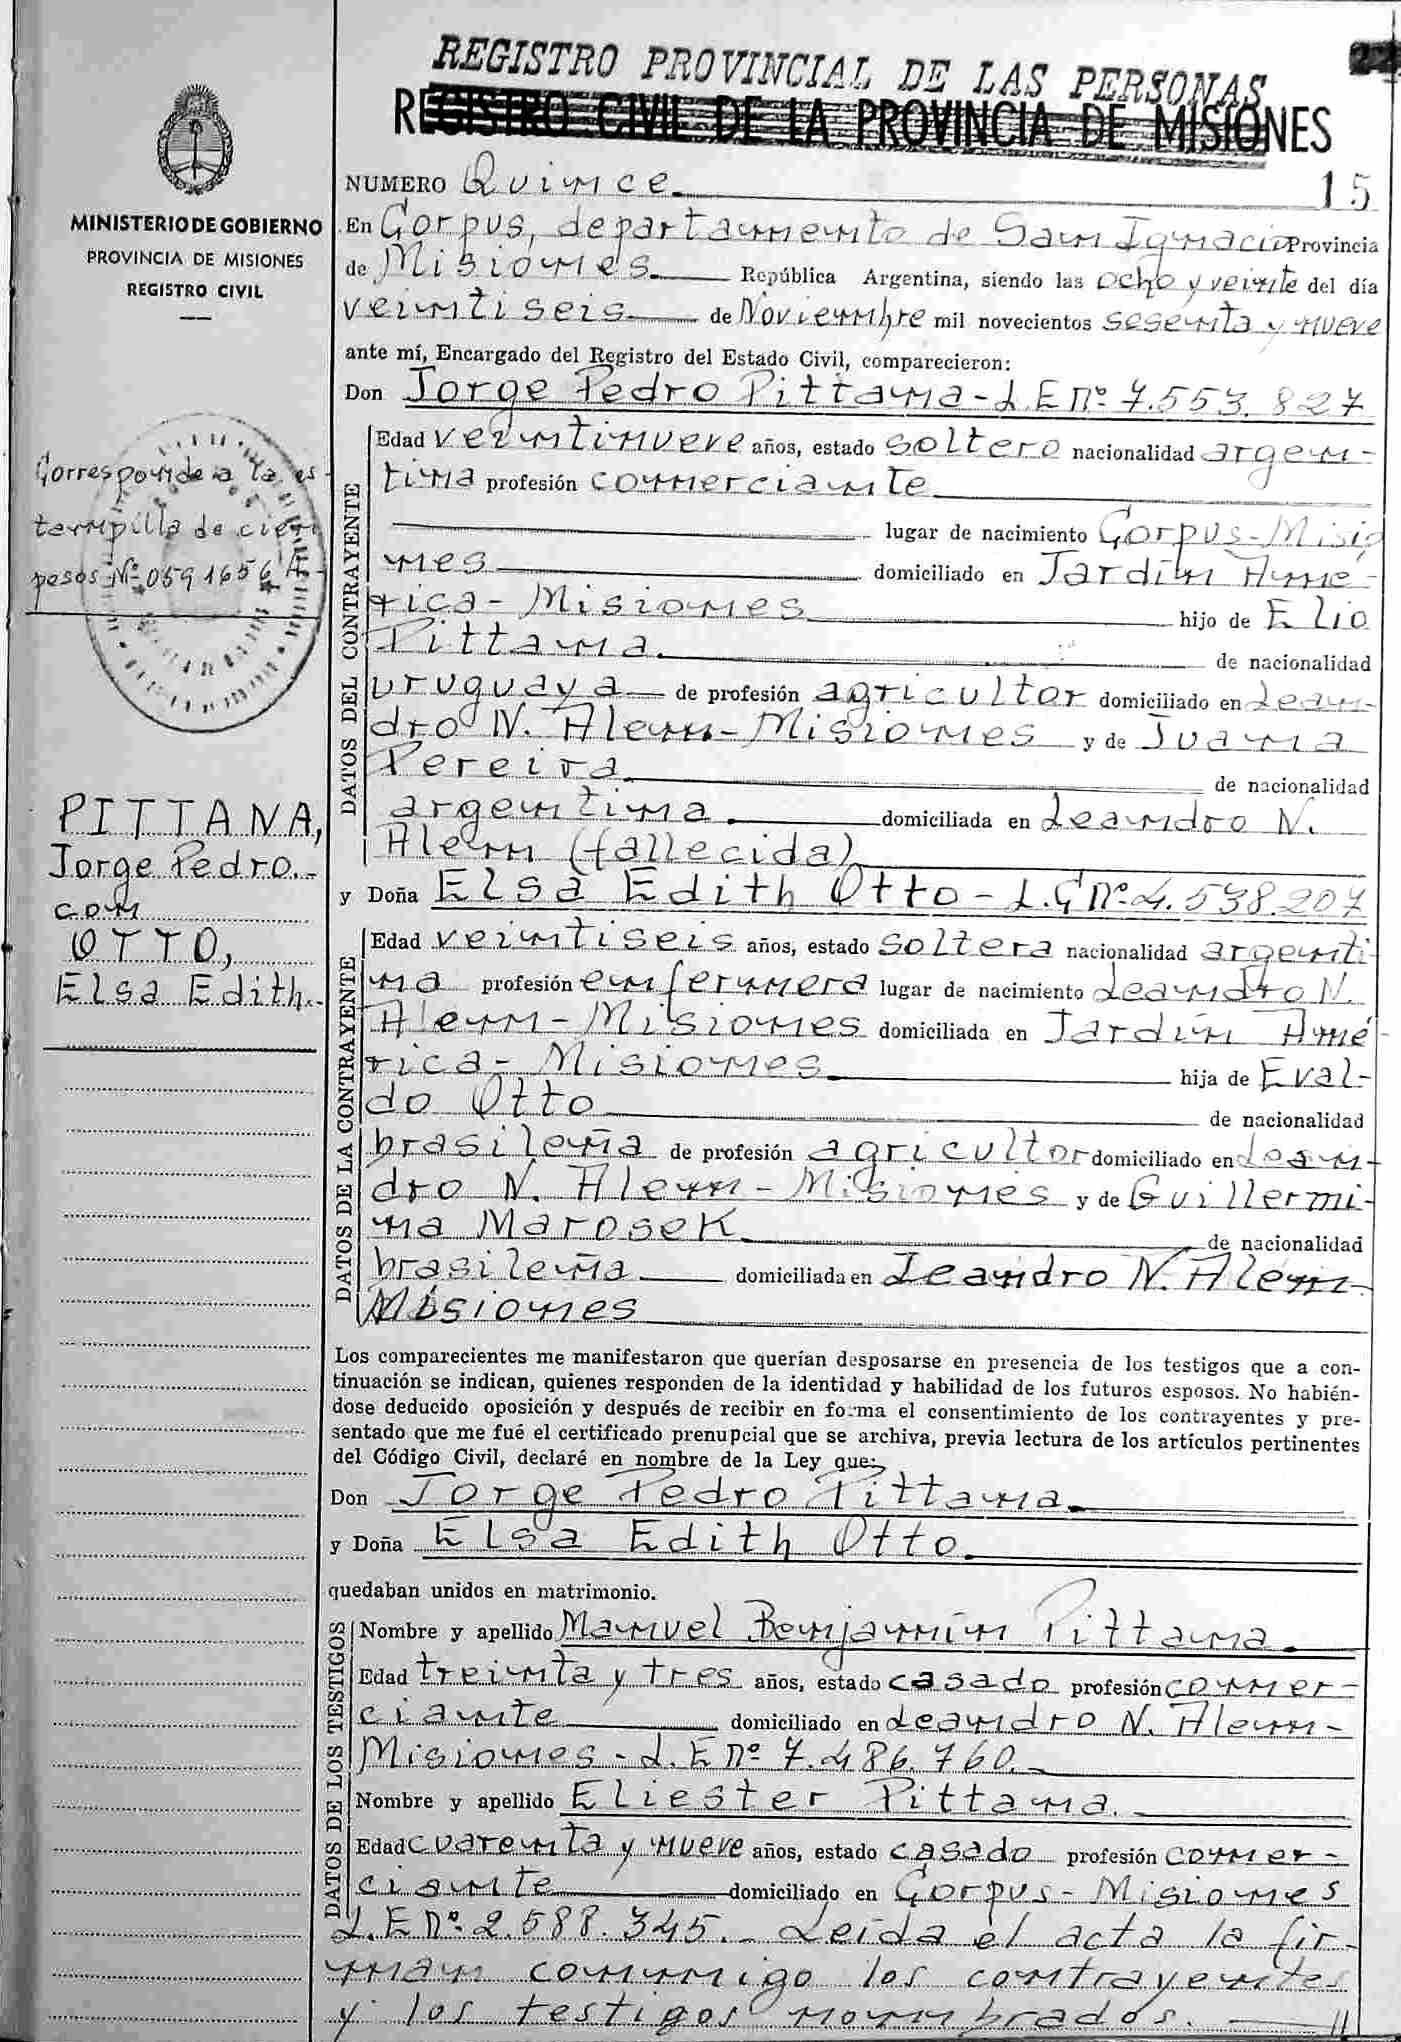 REGISTRO PROVINCIAL DE LAS PERSONAS
REGISTRO CIVIL DE LA PROVINCIA DE MISIONES
MINISTERIO DE GOBIERNO
PROVINCIA DE MISIONES
REGISTRO CIVIL
NUMERO Quince. 15
En Corpus, departamento de San Ignacio Provincia
de Misiones. República Argentina, siendo las ocho y veinte del día
veintiseis de Noviembre mil novecientos sesenta y nueve
ante mí, Encargado del Registro del Estado Civil, comparecieron:
Don Jorge Pedro Pittana - L.E nº 7.553.827
Corresponde a la es-
tampilla de cien
pesos Nº 0591656 A-
PITTANA,
Jorge Pedro.-
con
OTTO,
Elsa Edith.-
DATOS DEL CONTRAYENTE
Edad veintinueve años, estado soltero nacionalidad argen-
tina profesión comerciante
lugar de nacimiento Corpus-Misio
nes domiciliado en Jardín Amé-
rica - Misiones hijo de Elio
Pittana. de nacionalidad
uruguaya de profesión agricultor domiciliado en Lean-
dro N. Alem - Misiones y de Juana
Pereira de nacionalidad
argentina. domiciliada en Leandro N.
Alem (fallecida)
y Doña Elsa Edith Otto - L.C nº 4.538.207
DATOS DE LA CONTRAYENTE
Edad veintiseis años, estado soltera nacionalidad argenti-
na profesión enfermera lugar de nacimiento Leandro N.
Alem - Misiones domiciliada en Jardín Amé-
rica - Misiones. hija de Eval-
do Otto de nacionalidad
brasileña de profesión agricultor domiciliado en Lean-
dro N. Alem - Misiones y de Guillermi-
na Marosek de nacionalidad
brasileña domiciliada en Leandro N. Alem-
Misiones
Los comparecientes me manifestaron que querían desposarse en presencia de los testigos que a con-
tinuación se indican, quienes responden de la identidad y habilidad de los futuros esposos. No habién-
dose deducido oposición y después de recibir en forma el consentimiento de los contrayentes y pre-
sentado que me fué el certificado prenupcial que se archiva, previa lectura de los artículos pertinentes
del Código Civil, declaré en nombre de la Ley que:
Don Jorge Pedro Pittana.
y Doña Elsa Edith Otto.
quedaban unidos en matrimonio.
DATOS DE LOS TESTIGOS
Nombre y apellido Manuel Benjamín Pittana.
Edad treinta y tres años, estado casado profesión comer-
ciante domiciliado en Leandro N. Alem-
Misiones - L.E nº 7.486.760.-
Nombre y apellido Eliester Pittana.
Edad cuarenta y nueve años, estado casado profesión comer-
ciante domiciliado en Corpus - Misiones
L.E nº 2.588.345.- Leída el acta la fir-
man conmigo los contrayentes
y los testigos nombrados. //